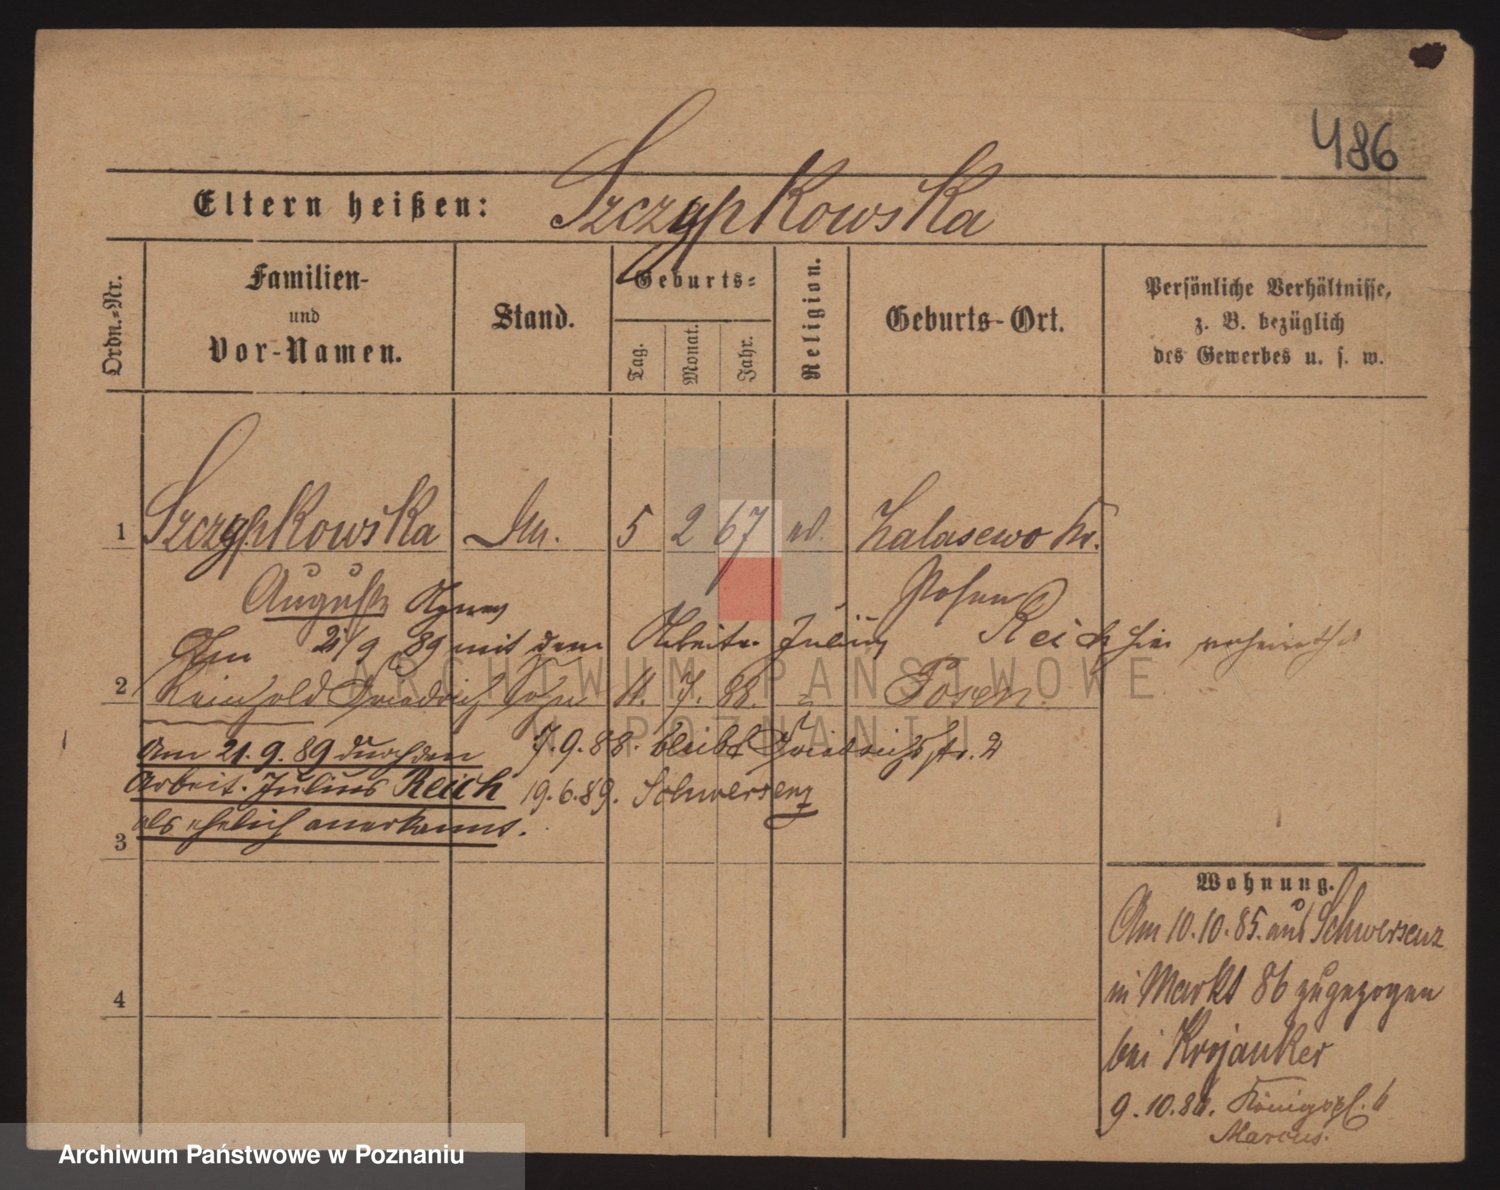 486
Eltern heißen: Szczypkowska
Ordn.-Nr.
Familien-
und
Vor-Namen.
Stand.
Geburts-
Tag.
Monat.
Jahr.
Religion.
Geburts-Ort.
Persönliche Verhältnisse,
z. B. bezüglich
des Gewerbes u. s. w.
1 Szczypkowska 5 2 67 Zalasewo Kr.
Auguste Agnes Posen
21/9 89 mit dem Arbeiter Julius Reich hier verheirathet
2 Reinhold Friedrich Sohn 11. 7. 88. Posen.
Am 21.9.89 durch den 7.9.88. bleibt Friedrichstr. 2
Arbeit. Julius Reich 19.6.89. Schwersenz
als ehelich anerkannt.
3
Wohnung.
Am 10.10.85. aus Schwersenz
in Markt 86 zugezogen
4
bei Krojanker
9.10.86. Königspl. 6
Marcus.
ARCHIWUM PAŃSTWOWE
W POZNANIU
Archiwum Państwowe w Poznaniu